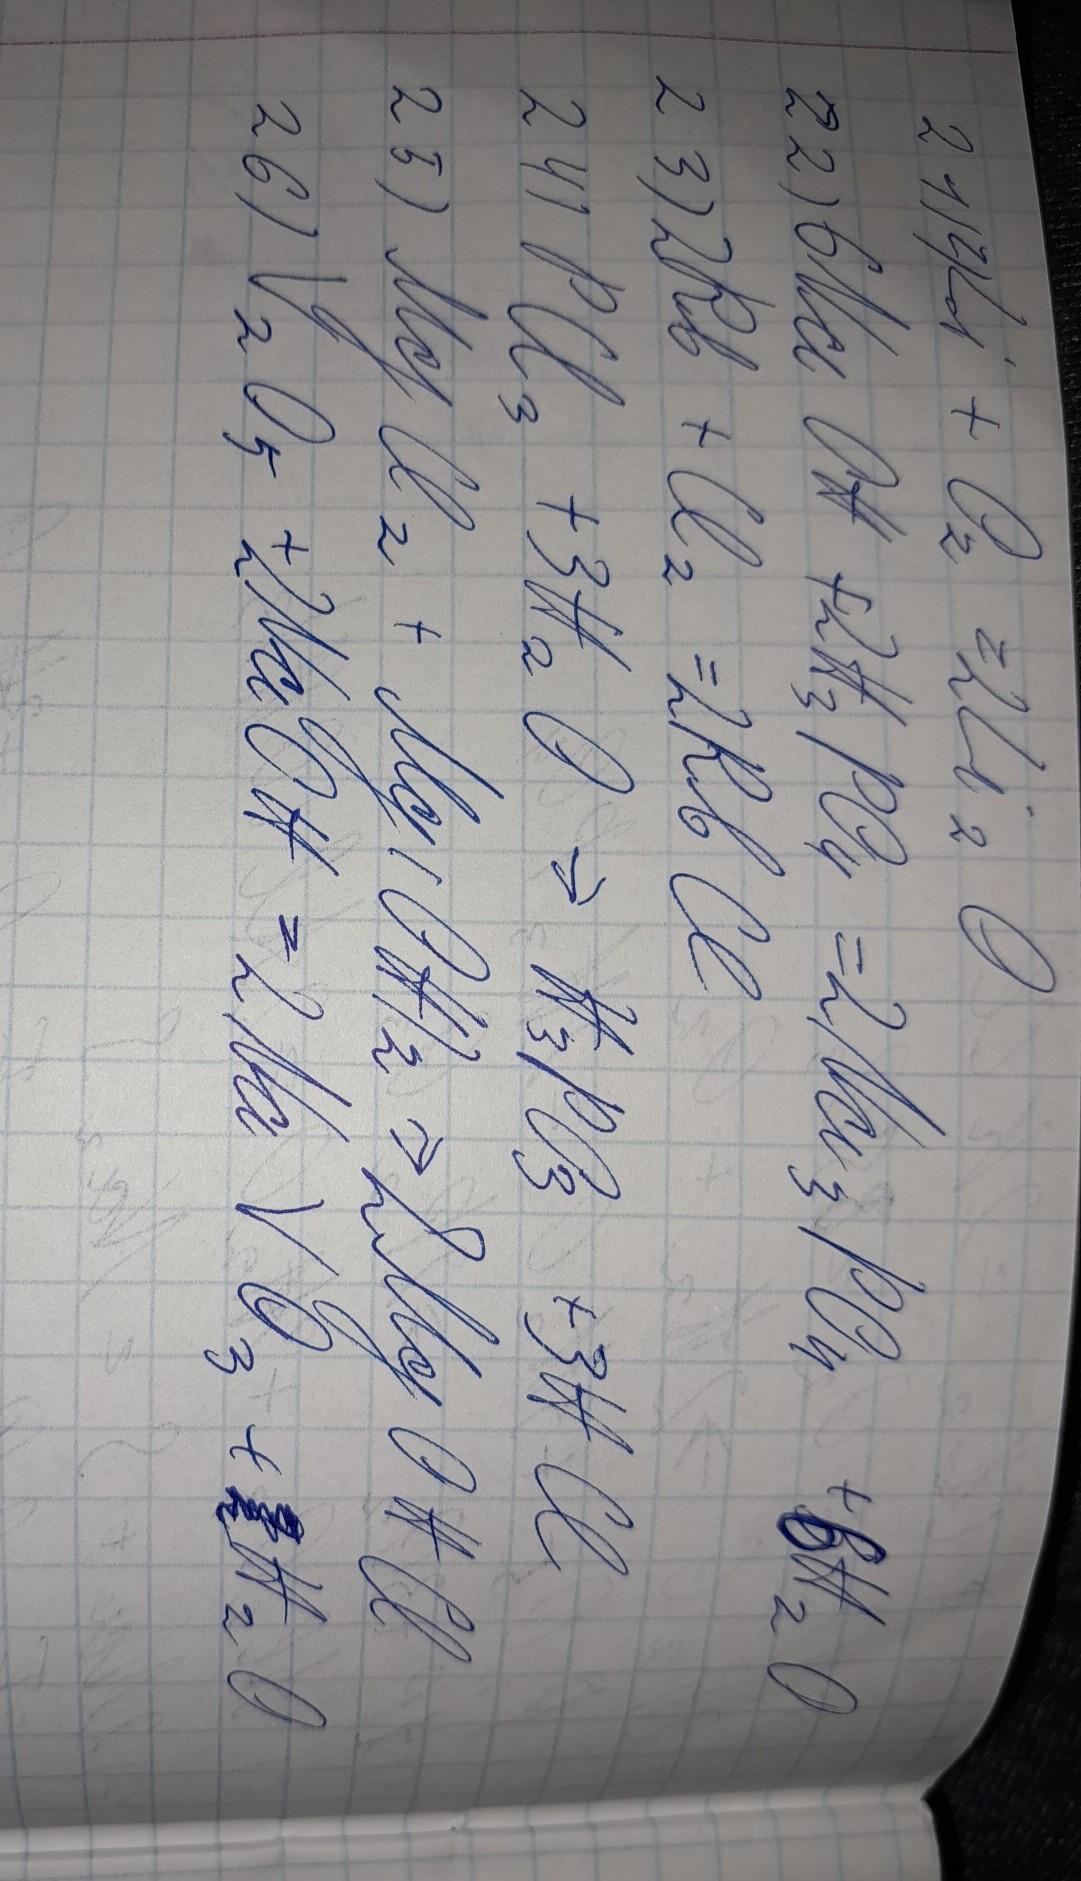 21) 4Li + O₂ = 2Li₂O
22) 6NaOH + 2H₃PO₄ = 2Na₃PO₄ + 6H₂O
23) 2Rb + Cl₂ = 2RbCl
24) PCl₃ + 3H₂O → H₃PO₃ + 3HCl
25) MgCl₂ + Mg(OH)₂ → 2MgOHCl
26) V₂O₅ + 2NaOH = 2NaVO₃ + H₂O